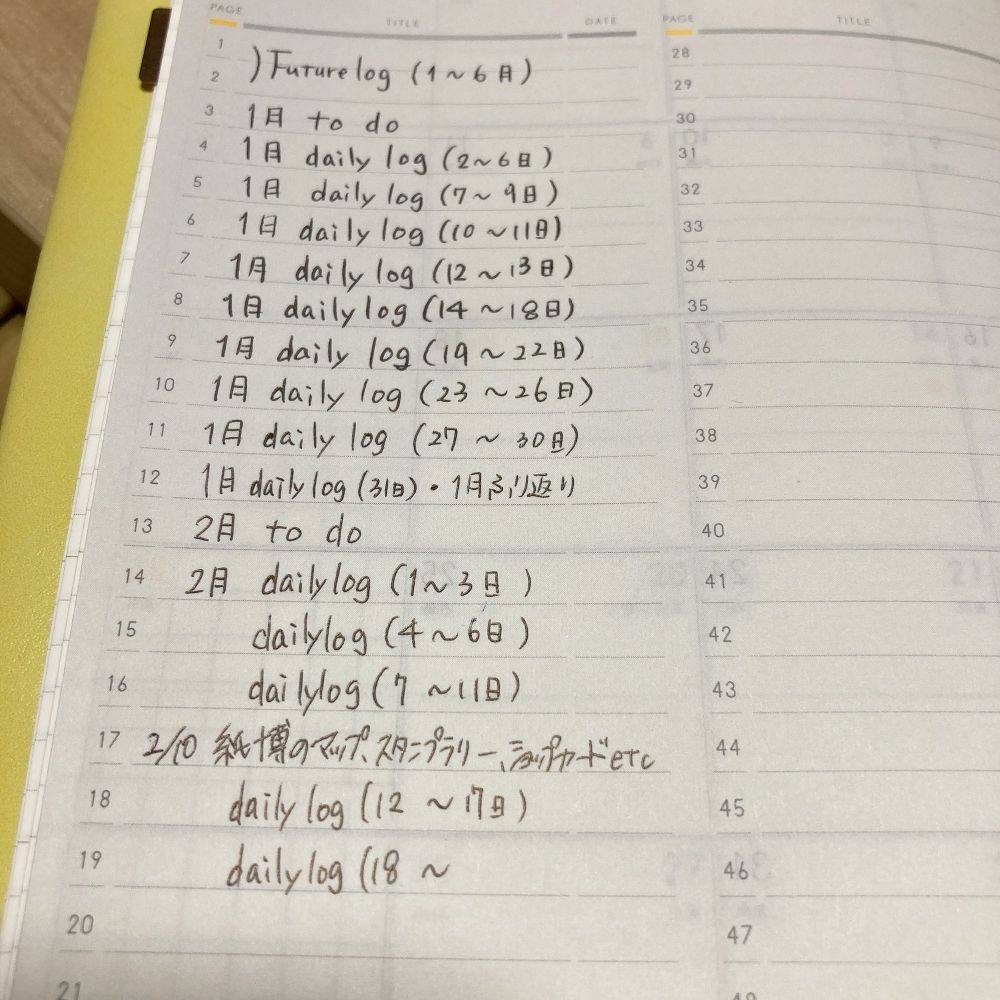 PAGE TITLE DATE
1
2 )Future log (1～6月)
3 1月 to do
4 1月 daily log (2～6日)
5 1月 daily log (7～9日)
6 1月 daily log (10～11日)
7 1月 daily log (12～13日)
8 1月 daily log (14～18日)
9 1月 daily log (19～22日)
10 1月 daily log (23～26日)
11 1月 daily log (27～30日)
12 1月 daily log (31日)・1月ふり返り
13 2月 to do
14 2月 daily log (1～3日)
15 daily log (4～6日)
16 daily log (7～11日)
17 2/10 紙博のマップ、スタンプラリー、ショップカードetc
18 daily log (12～17日)
19 daily log (18～
20
21
PAGE TITLE
28
29
30
31
32
33
34
35
36
37
38
39
40
41
42
43
44
45
46
47
48